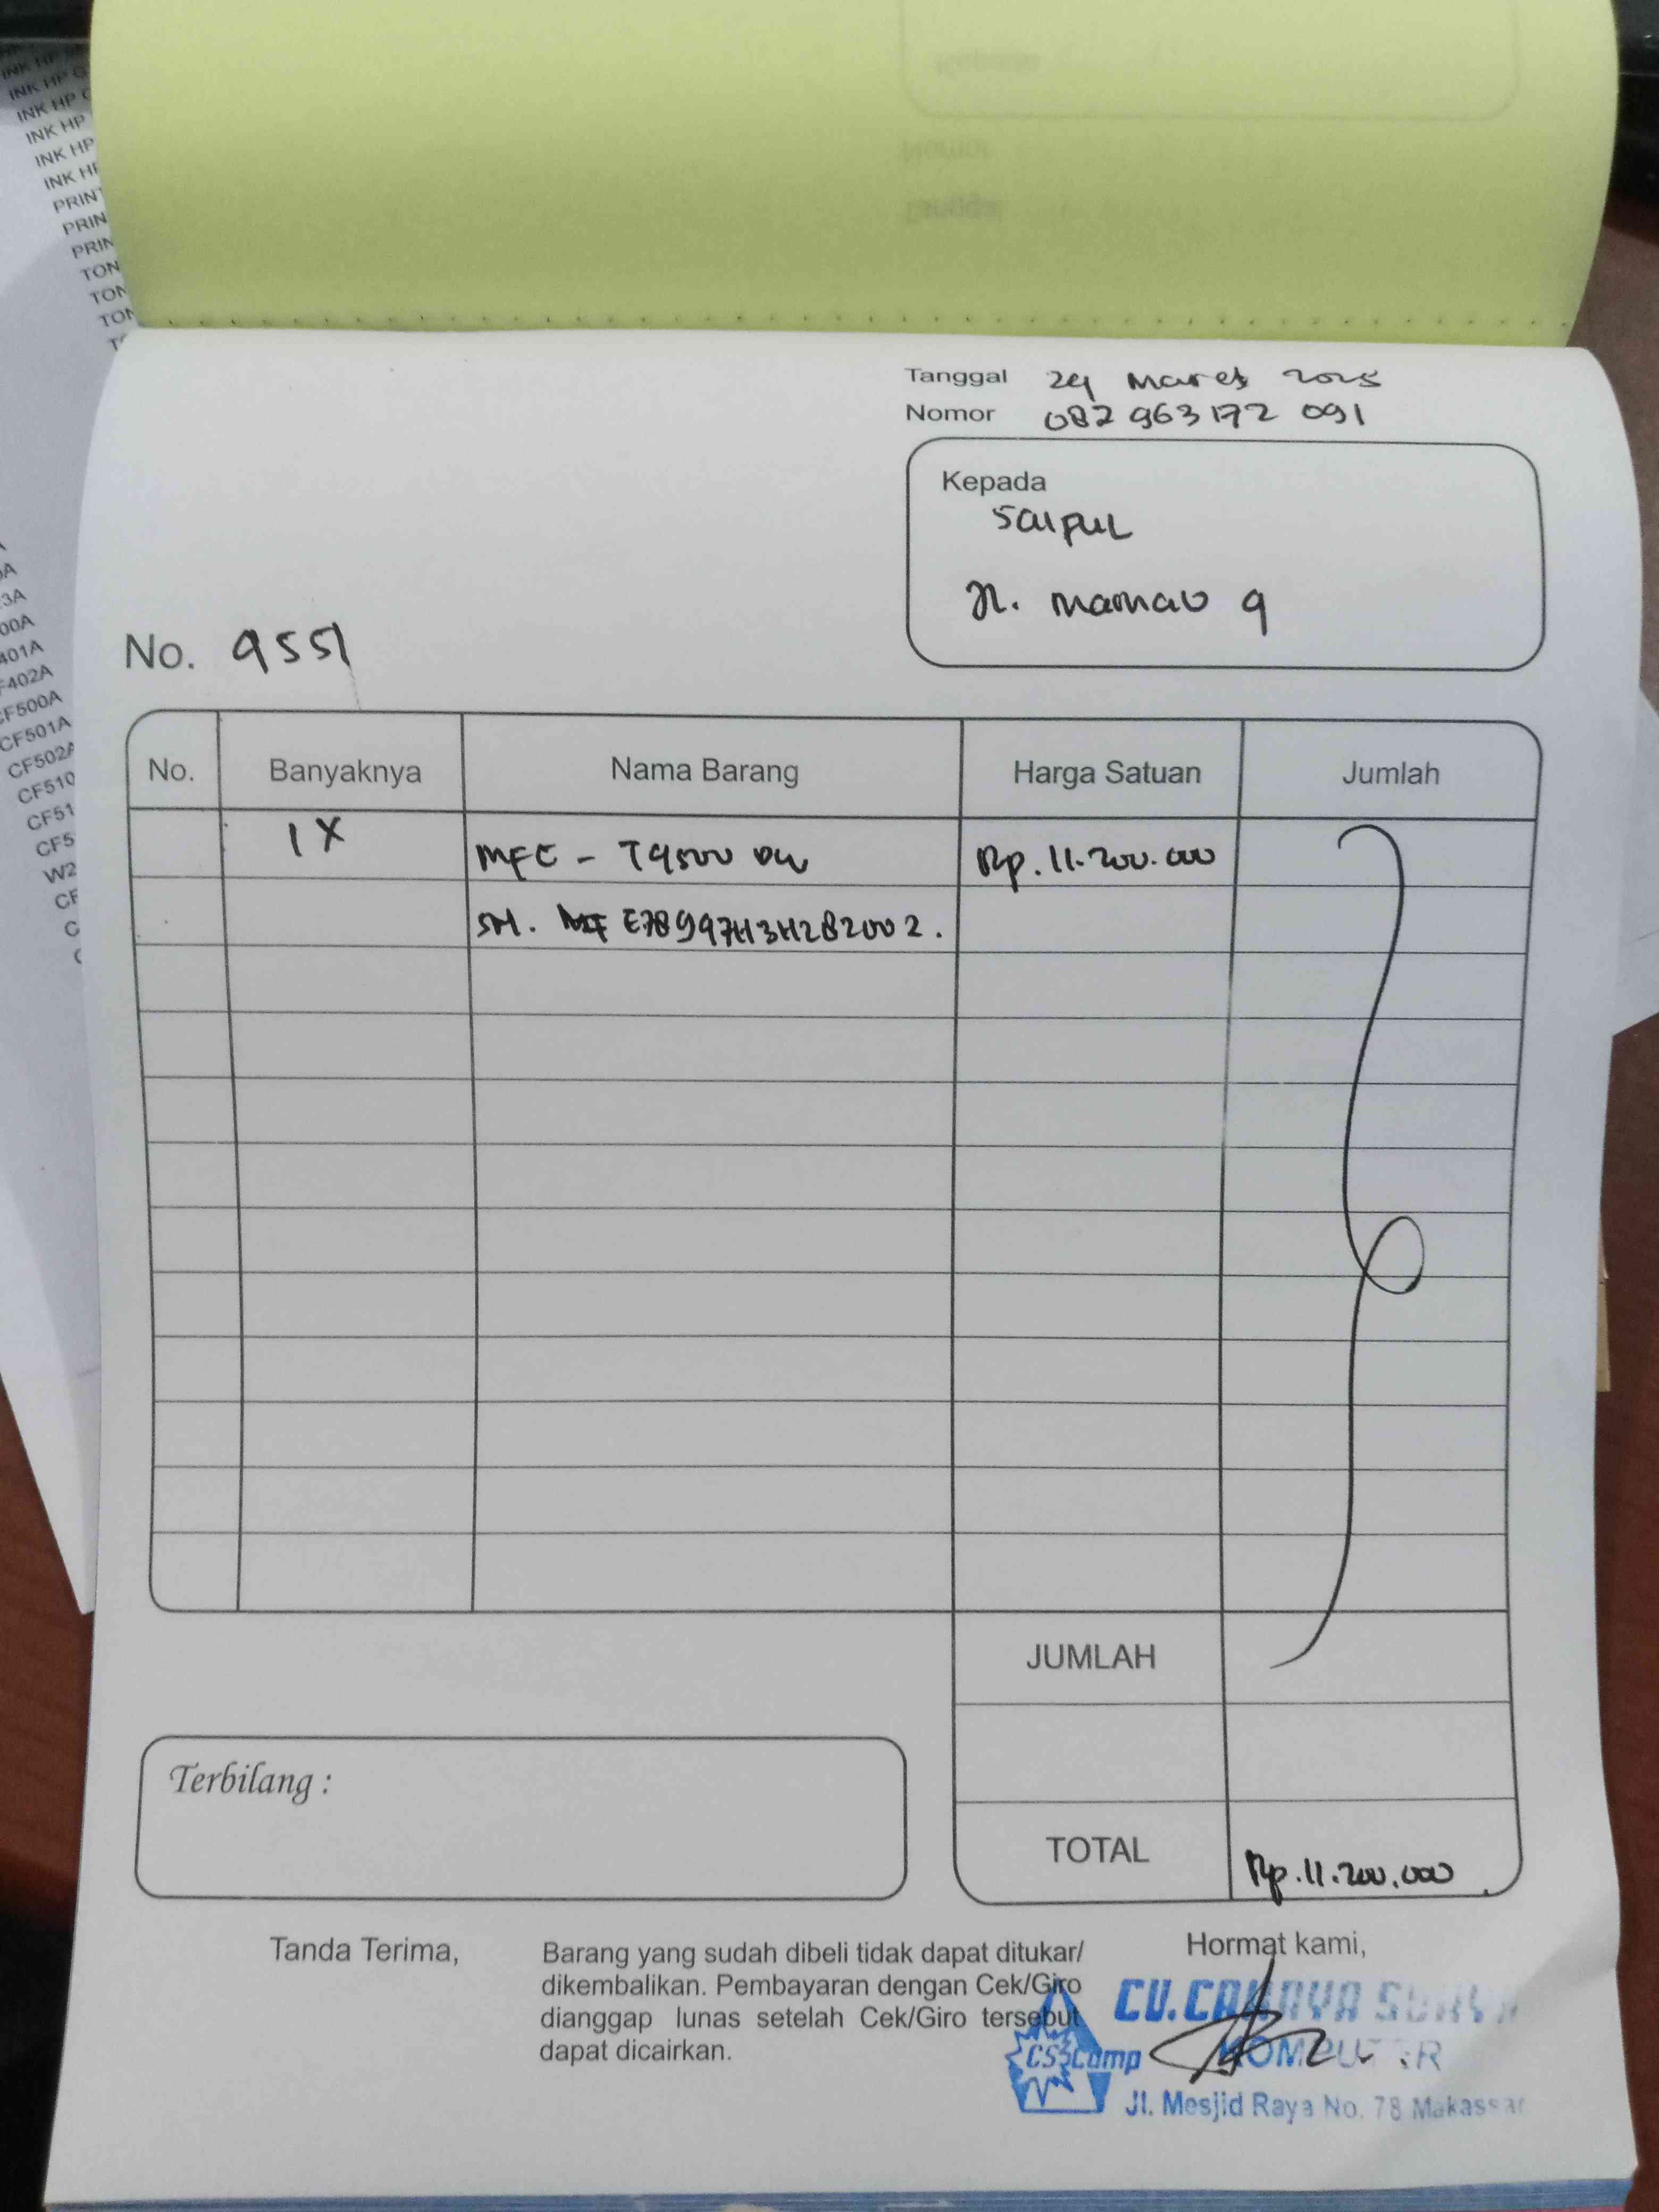 INK HP
INK HP G
INK HP C
INK HP
INK HP
INK HP
PRINT
PRIN
PRIN
TON
TON
TON
Tanggal 24 Maret 2025
Nomor 082 963 172 091
Kepada
Saipul
Jl. mamao 9
No. 9551
No. Banyaknya Nama Barang Harga Satuan Jumlah
1 X MFC - T9500 DW Rp. 11.200.000
SN. E78997H3H282002.
JUMLAH
Terbilang :
TOTAL Rp. 11.200.000
Tanda Terima,
Barang yang sudah dibeli tidak dapat ditukar/
dikembalikan. Pembayaran dengan Cek/Giro
dianggap lunas setelah Cek/Giro tersebut
dapat dicairkan.
Hormat kami,
CV. CAHAYA SURYA
CS Comp KOMPUTER
Jl. Mesjid Raya No. 78 Makassar
3A
00A
401A
F402A
CF500A
CF501A
CF502A
CF510
CF51
CF5
W2
CF